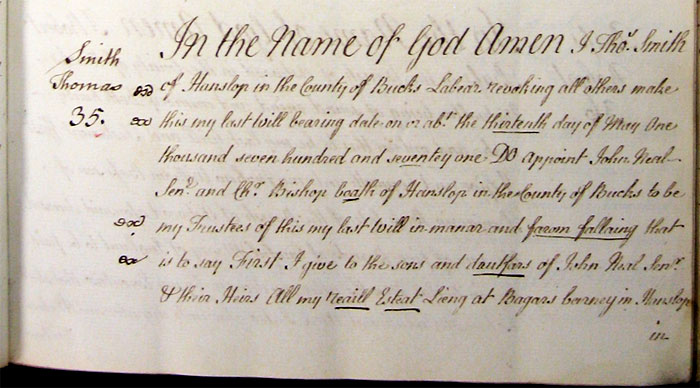 Smith
Thomas
35.
In the Name of God Amen I Tho.s Smith
of Hanslop in the County of Bucks Labear revoking all others make
this my last will bearing date on or abt. the thirtenth day of May One
thousand seven hundred and seventey one DO appoint John Neal
Senr. and Chr. Bishop boath of Hanslop in the County of Bucks to be
my Trustees of this my last will in manar and farom fallaing that
is to say First I give to the sons and dautfars of John Neal Senr.
& their Heirs All my reaill Esteat Lieng at Bagars barney in Hanslop
in